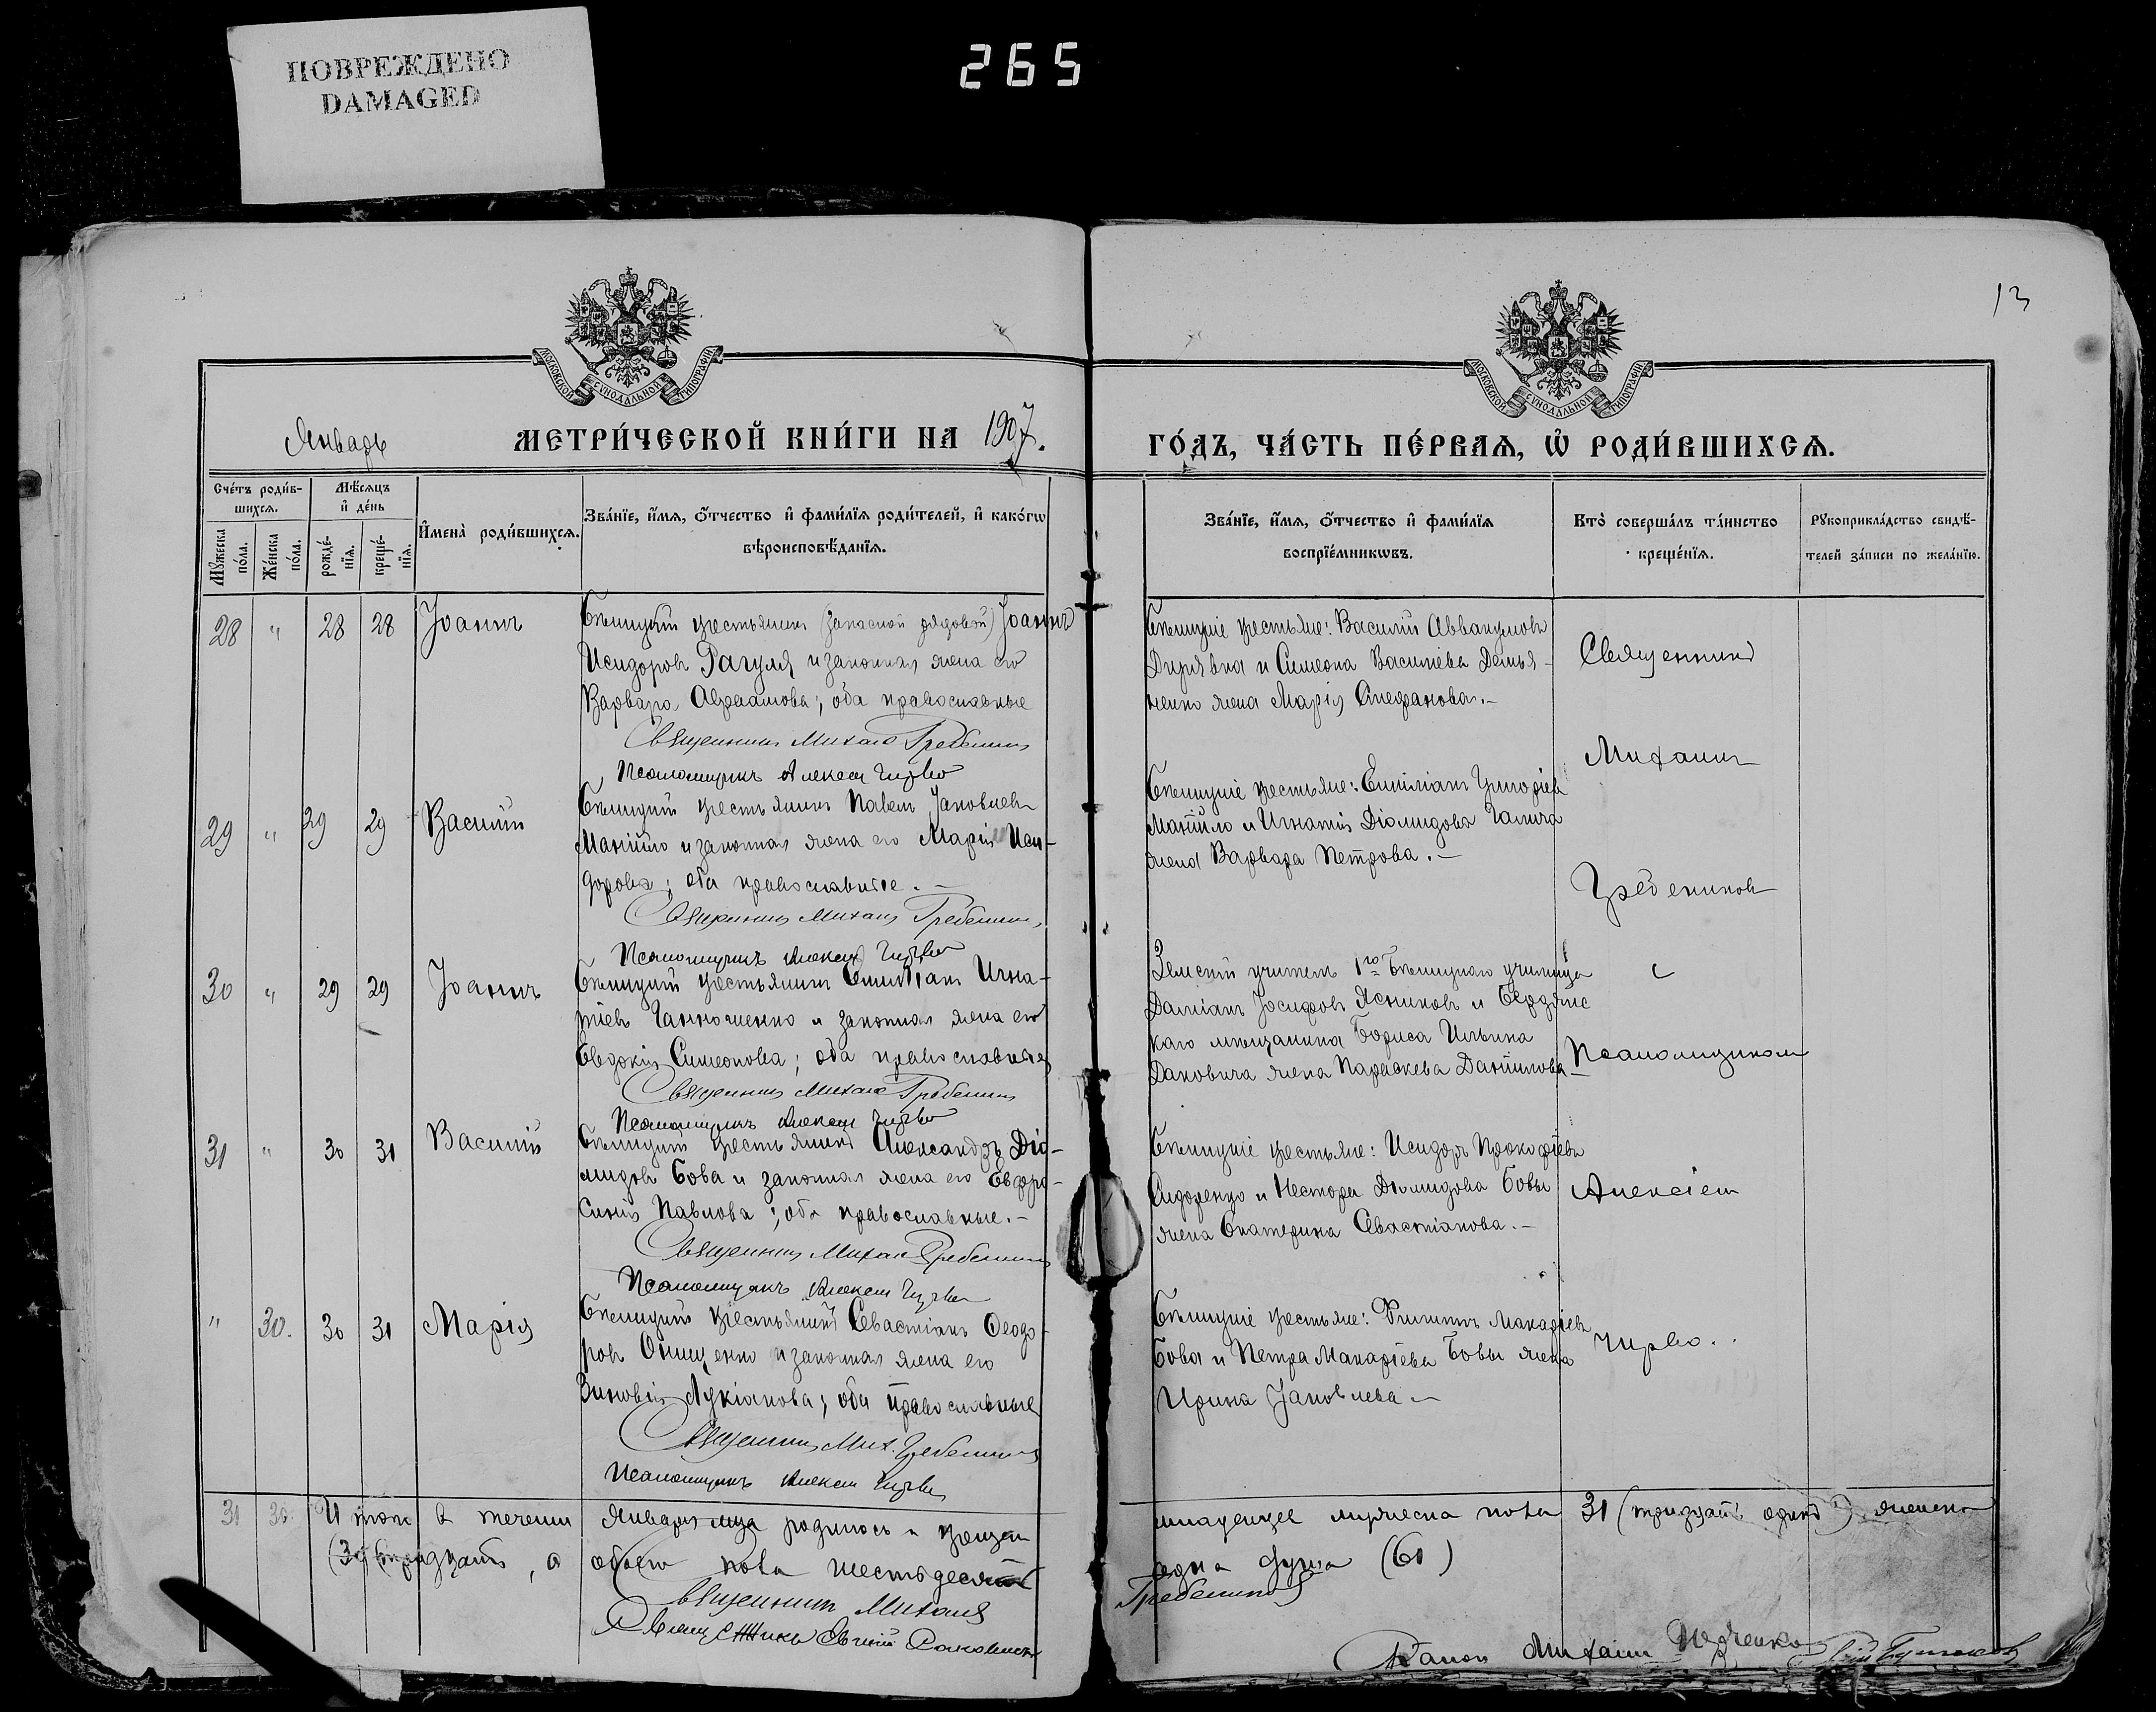 ПОВРЕЖДЕНО
DAMAGED
265
13
МОСКОВСКОЙ СѴНОДАЛЬНОЙ ТИПОГРАФІИ
МОСКОВСКОЙ СѴНОДАЛЬНОЙ ТИПОГРАФІИ
Январь
МЕТРИ́ЧЕСКОЙ КНИ́ГИ НА 1907.
ГО́ДЪ, ЧА́СТЬ ПЕ́РВАѦ, Ѡ҆ РОДИ́ВШИХСѦ.
Сче́тъ роди́в-
шихсѧ.
Мѣ́сѧцъ
и҆ де́нь
Мꙋ́жеска
по́ла.
Же́нска
по́ла.
рожде́-
нїѧ.
креще́-
нїѧ.
И҆мена̀ роди́вшихсѧ.
Зва́нїе, и҆́мѧ, ѻ҆́тчество и҆ фами́лїѧ роди́телей, и҆ како́гѡ
вѣроисповѣ́данїѧ.
Зва́нїе, и҆́мѧ, ѻ҆́тчество и҆ фами́лїѧ
воспрїе́мникѡвъ.
Кто̀ соверша́лъ та́инство
креще́нїѧ.
Рꙋкоприкла́дство свидѣ́-
телей за́писи по жела́нїю.
28 " 28 28 Іоаннъ
крестьянинъ (запасной рядовой) Іоаннъ
Исидоровъ Рагуля и законная жена его
Варвара Авраамова; оба православные
Священникъ Михаилъ Гребенниковъ
Псаломщикъ Алексій Чирво
крестьяне: Василій Аввакумовъ
и Симеона Васильева Демья-
ненко жена Марія Стефанова.-
Священникъ
Михаилъ
Гребенниковъ
с
Псаломщикомъ
Алексіемъ
Чирво.
29 " 29 29 Василій
крестьянинъ Павелъ Іаковлевъ
Манійло и законная жена его Марія Иси-
дорова; оба православные.-
Священникъ Михаилъ Гребенниковъ
Псаломщикъ Алексій Чирво
крестьяне: Емиліанъ Григоріевъ
Манійло и Игнатія Діомидова Галича
жена Варвара Петрова.-
30 " 29 29 Іоаннъ
крестьянинъ Емиліанъ Игна-
тіевъ и законная жена его
Евдокія Симеонова; оба православные
Священникъ Михаилъ Гребенниковъ
Псаломщикъ Алексій Чирво
Земскій учитель 1го училища
Даміанъ Іосифовъ Ясниковъ и Бердянс
каго мѣщанина Бориса Ильина
Даковича жена Параскева Даніилова-
31 " 30 31 Василій
крестьянинъ Александръ Діо-
мидовъ Бова и законная жена его Евфро-
синія Павлова; оба православные.-
Священникъ Михаилъ Гребенниковъ
Псаломщикъ Алексій Чирво
крестьяне: Исидоръ Прокофіевъ
Сидоренко и Нестора Діомидова Бовы
жена Екатерина Севастіанова.-
" 30. 30 31 Марія
крестьянинъ Севастіанъ Ѳеодо-
ровъ Онищенко и законная жена его
Зиновія Лукіанова; оба православные
Священникъ Мих. Гребенниковъ
Псаломщикъ Алексій Чирво
крестьяне: Филиппъ Макаріевъ
Бова и Петра Макаріева Бовы жена
Ирина Іаковлева-
31 30 Итого в теченіи Января м-ца родилось и крещен младенцев мужеска пола 31 (тридцать одинъ) женска
(30) тридцать, а обоего пола шестьдесятъ одна душа (61)
Священникъ Михаилъ Гребенниковъ
Михаилъ